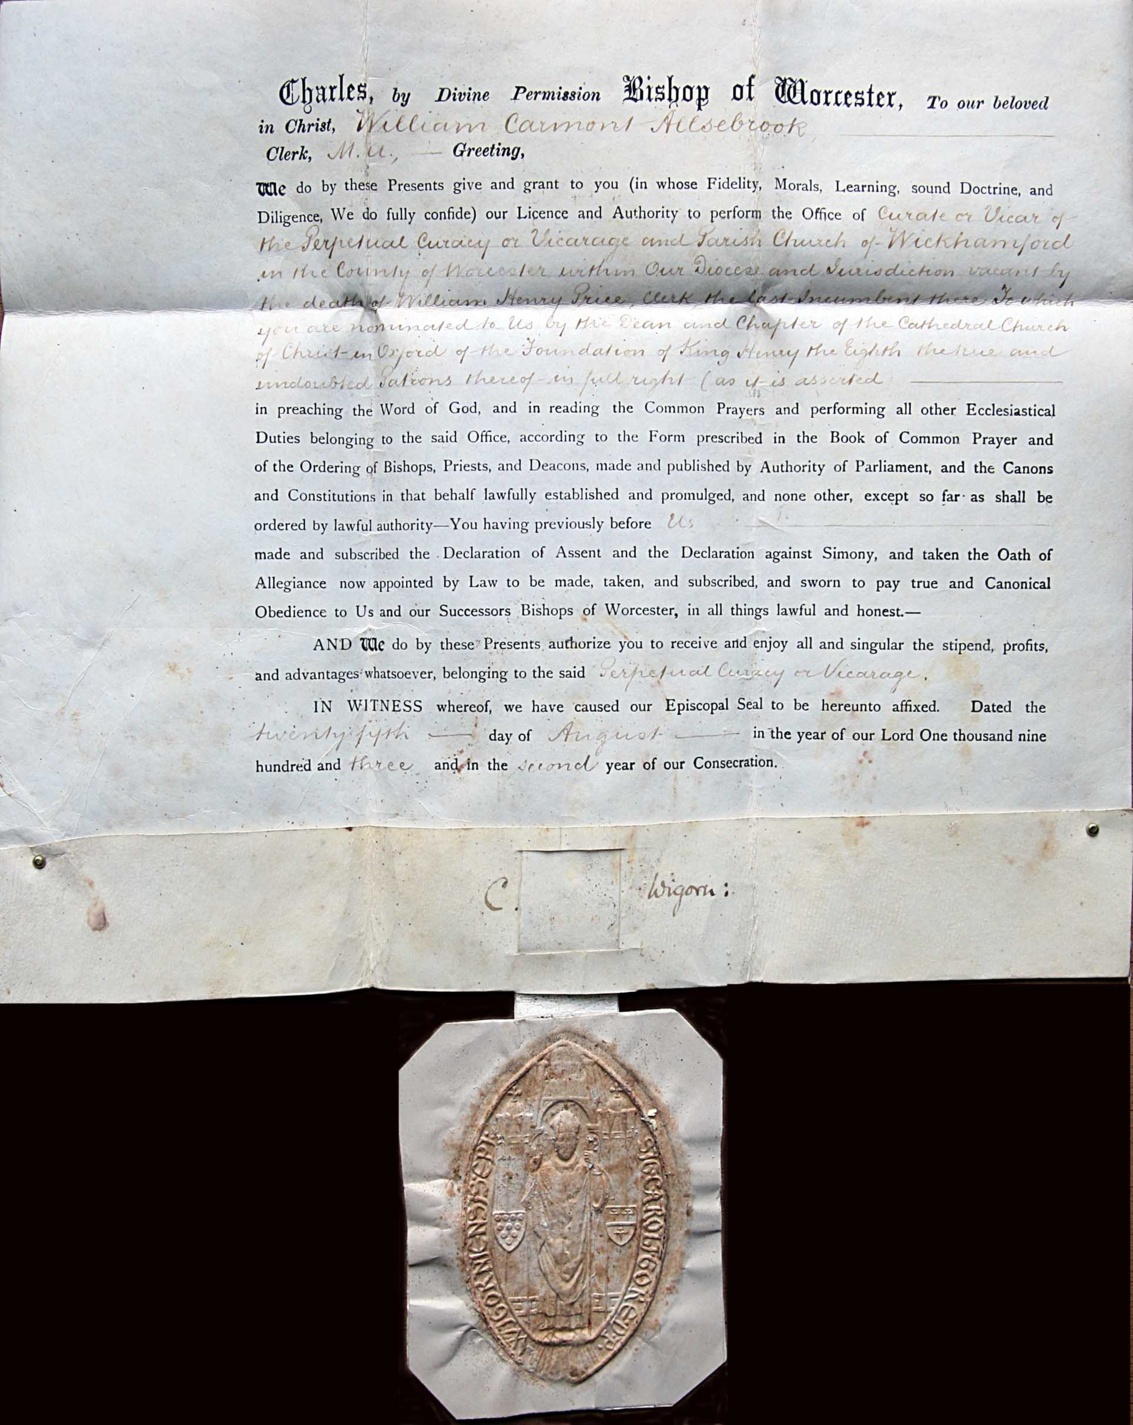 Charles, by Divine Permission Bishop of Worcester, To our beloved
in Christ, William Carmont Allsebrook
Clerk, M.A., — Greeting,
We do by these Presents give and grant to you (in whose Fidelity, Morals, Learning, sound Doctrine, and
Diligence, We do fully confide) our Licence and Authority to perform the Office of Curate or Vicar of
the Perpetual Curacy or Vicarage and Parish Church of Wickhamford
in the County of Worcester within Our Diocese and Jurisdiction vacant by
the death of William Henry Price, Clerk the last Incumbent there To which
you are nominated to Us by the Dean and Chapter of the Cathedral Church
of Christ in Oxford of the Foundation of King Henry the Eighth the true and
undoubted Patrons thereof in full right (as it is asserted
in preaching the Word of God, and in reading the Common Prayers and performing all other Ecclesiastical
Duties belonging to the said Office, according to the Form prescribed in the Book of Common Prayer and
of the Ordering of Bishops, Priests, and Deacons, made and published by Authority of Parliament, and the Canons
and Constitutions in that behalf lawfully established and promulged, and none other, except so far as shall be
ordered by lawful authority—You having previously before Us
made and subscribed the Declaration of Assent and the Declaration against Simony, and taken the Oath of
Allegiance now appointed by Law to be made, taken, and subscribed, and sworn to pay true and Canonical
Obedience to Us and our Successors Bishops of Worcester, in all things lawful and honest.—
AND We do by these Presents authorize you to receive and enjoy all and singular the stipend, profits,
and advantages whatsoever, belonging to the said Perpetual Curacy or Vicarage.
IN WITNESS whereof, we have caused our Episcopal Seal to be hereunto affixed. Dated the
twenty fifth — day of August — in the year of our Lord One thousand nine
hundred and three and in the second year of our Consecration.
C. Wigorn:
SIG: CAROLI GORE D.P.
WIGORNIENSIS EPI